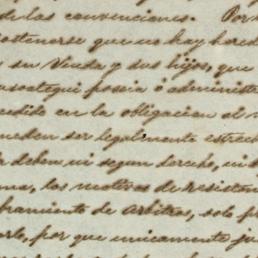 de las convenciones. Por
sostenerse que no hay hered
su Viuda y sus hijos, que
asoategui poseia ó administr
cedido en la obligacion al
ueden ser legalmente estrech
deben ni segun derecho, ni
ma, los motivos de resisten
framiento de árbitros, solo p
arlo, por que unicamente ju